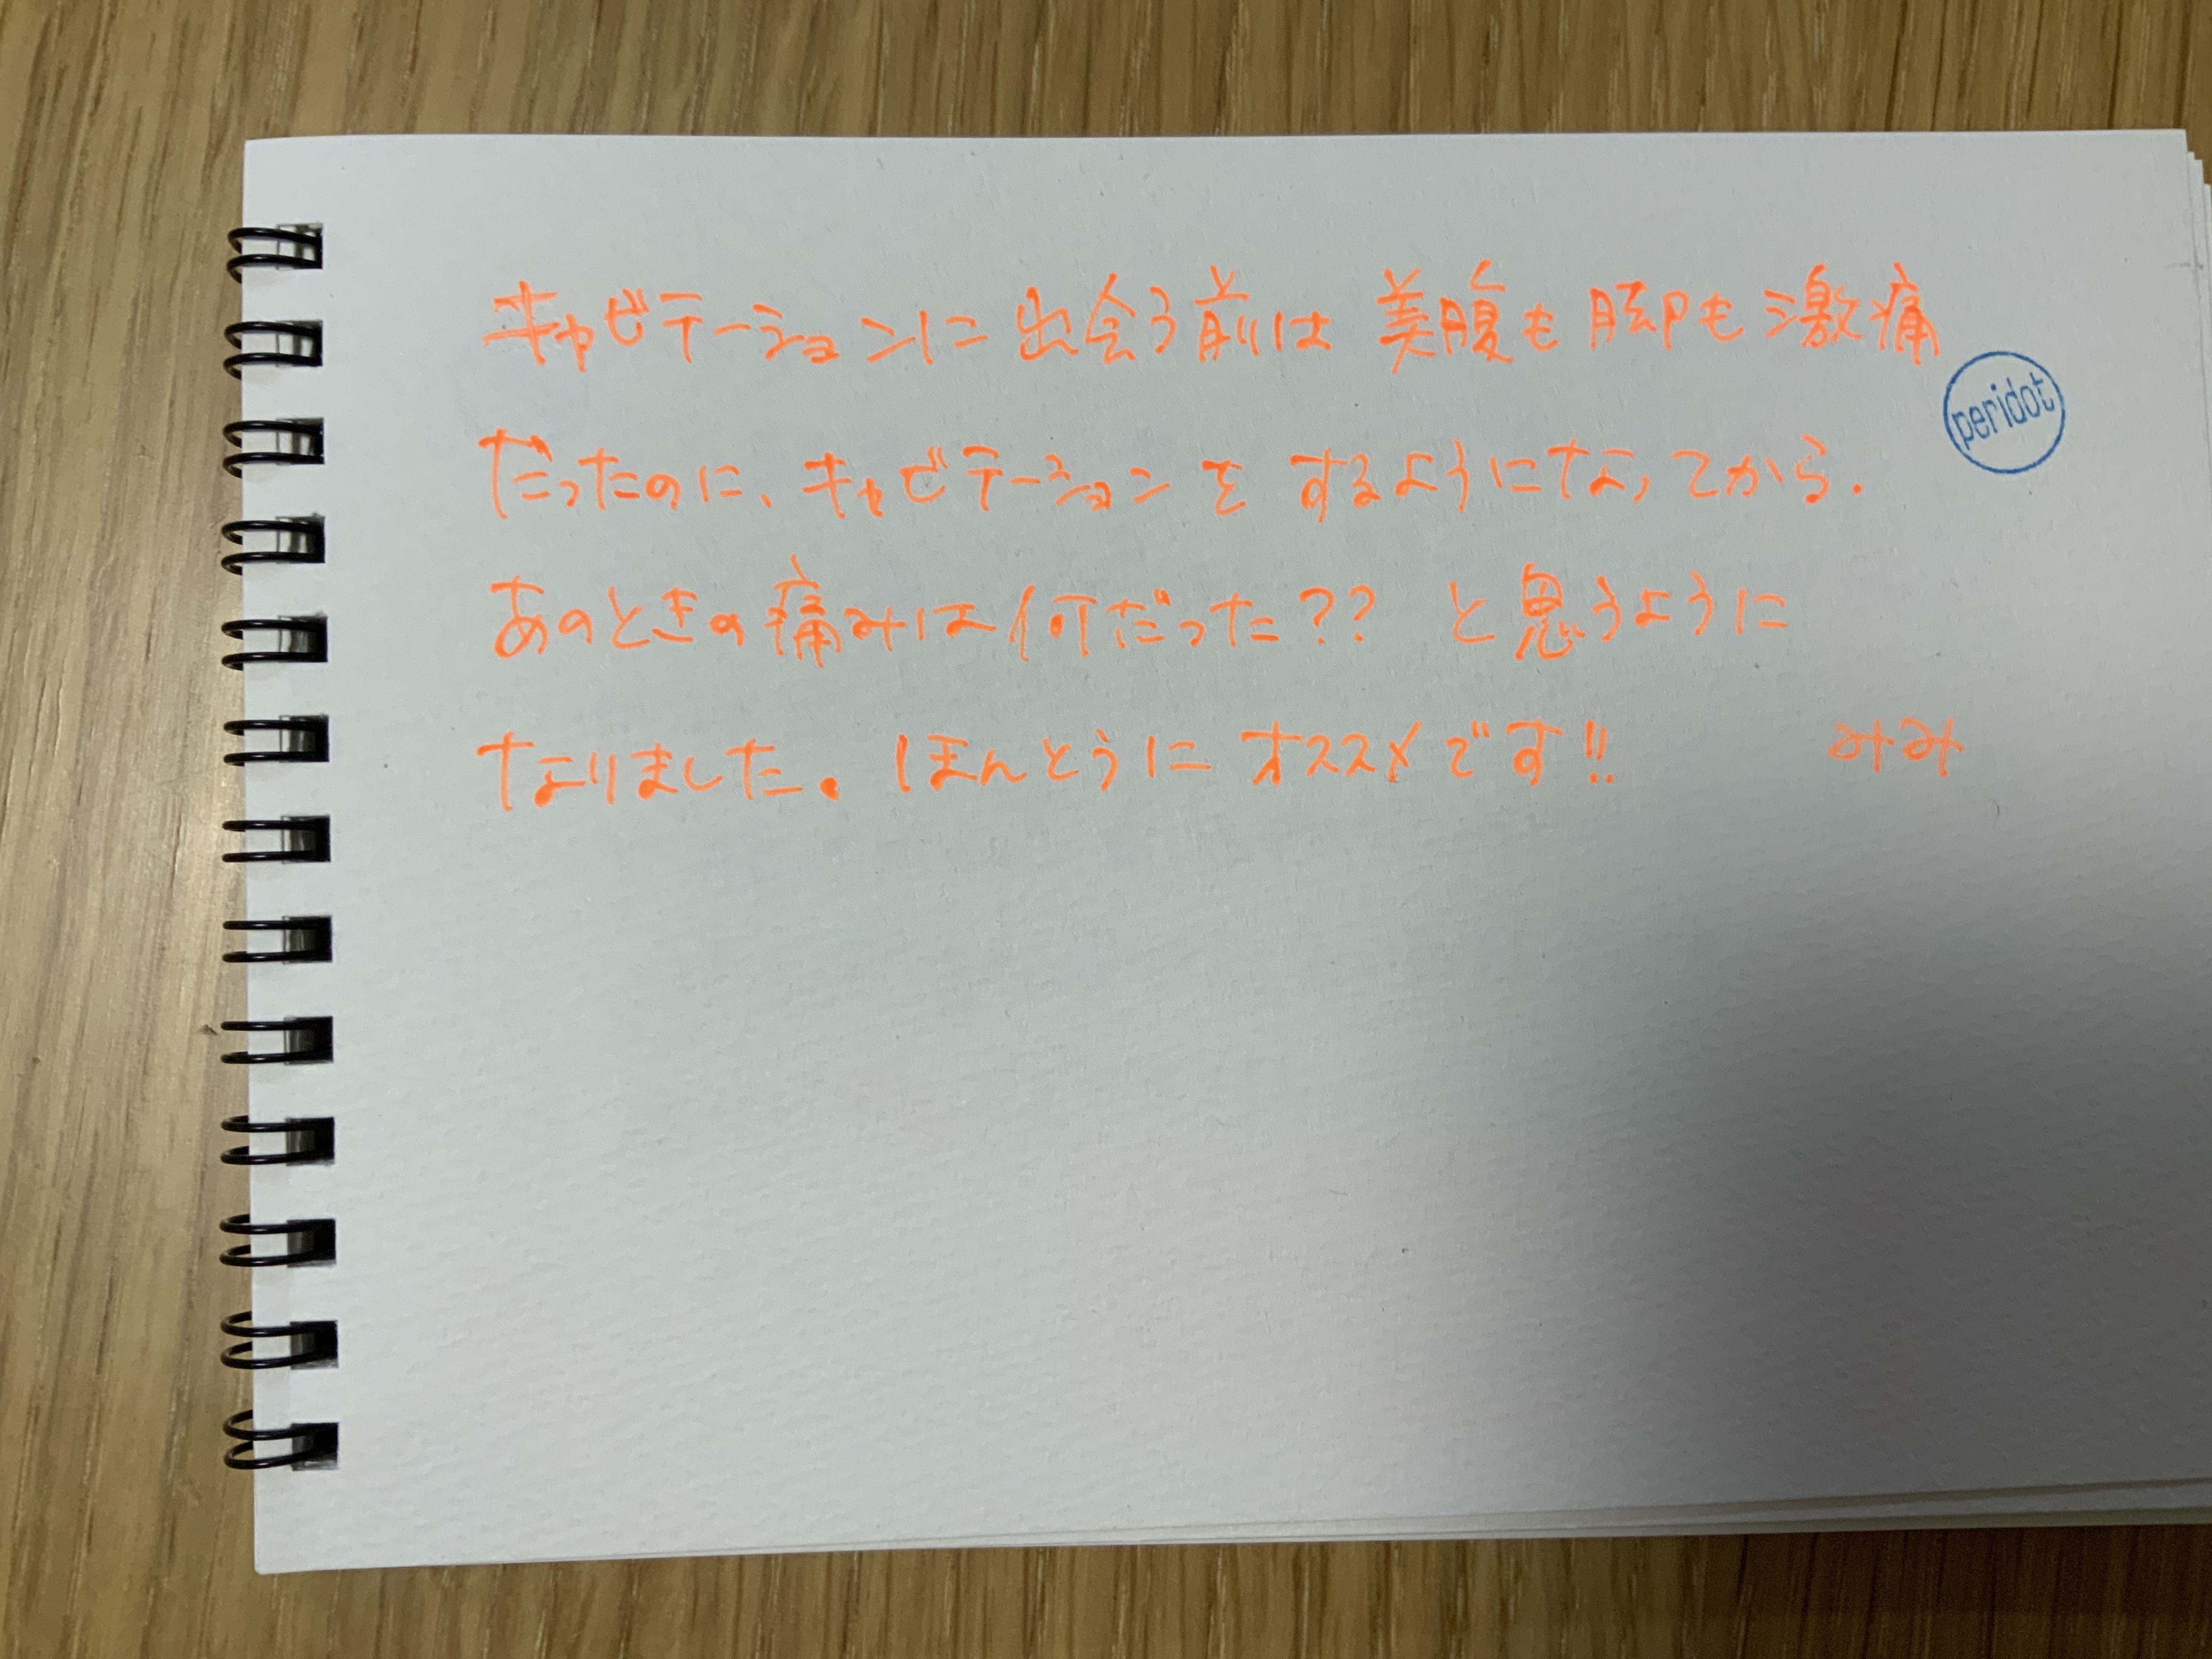 キャビテーションに出会う前は美腹も脚も激痛
peridot
だったのに、キャビテーションをするようになってから.
あのときの痛みは何だった?? と思うように
なりました。ほんとうにオススメです!! みみ